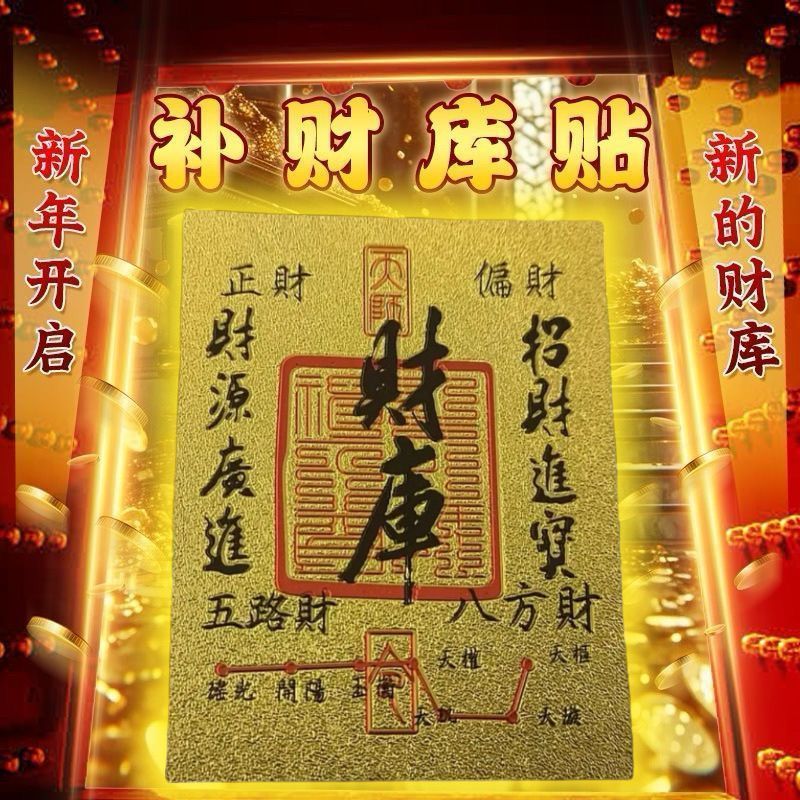 补财库贴
新年开启
新的财库
正財
天師
偏財
財源廣進
財庫
招財進寶
五路財
八方財
令
搖光
開陽
玉衡
天權
天樞
天璇